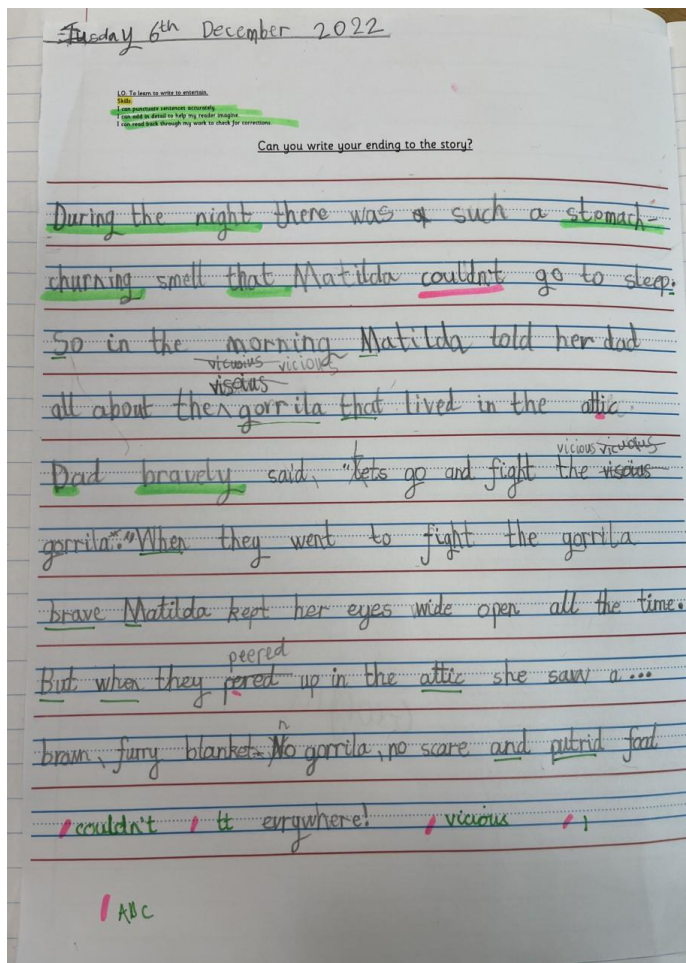 Tusday 6th December 2022
LO: To learn to write to entertain.
Skills:
I can punctuate sentences accurately.
I can add in detail to help my reader imagine.
I can read back through my work to check for corrections.
Can you write your ending to the story?
During the night there was a such a stomach-
churning smell that Matilda couldn't go to sleep.
So in the morning Matilda told her dad
vicuoius vicious
viscius
all about the ^ gorrila that lived in the attic.
Dad bravely said, "Lets go and fight the viscius
vicious vicuoius
gorrila." When they went to fight the gorrila
brave Matilda kept her eyes wide open all the time.
peered
But when they pered up in the attic she saw a...
n
brawn, furry blanket. No gorrila, no scare and putrid food
couldn't tt evrywhere! vicious ,
ABC